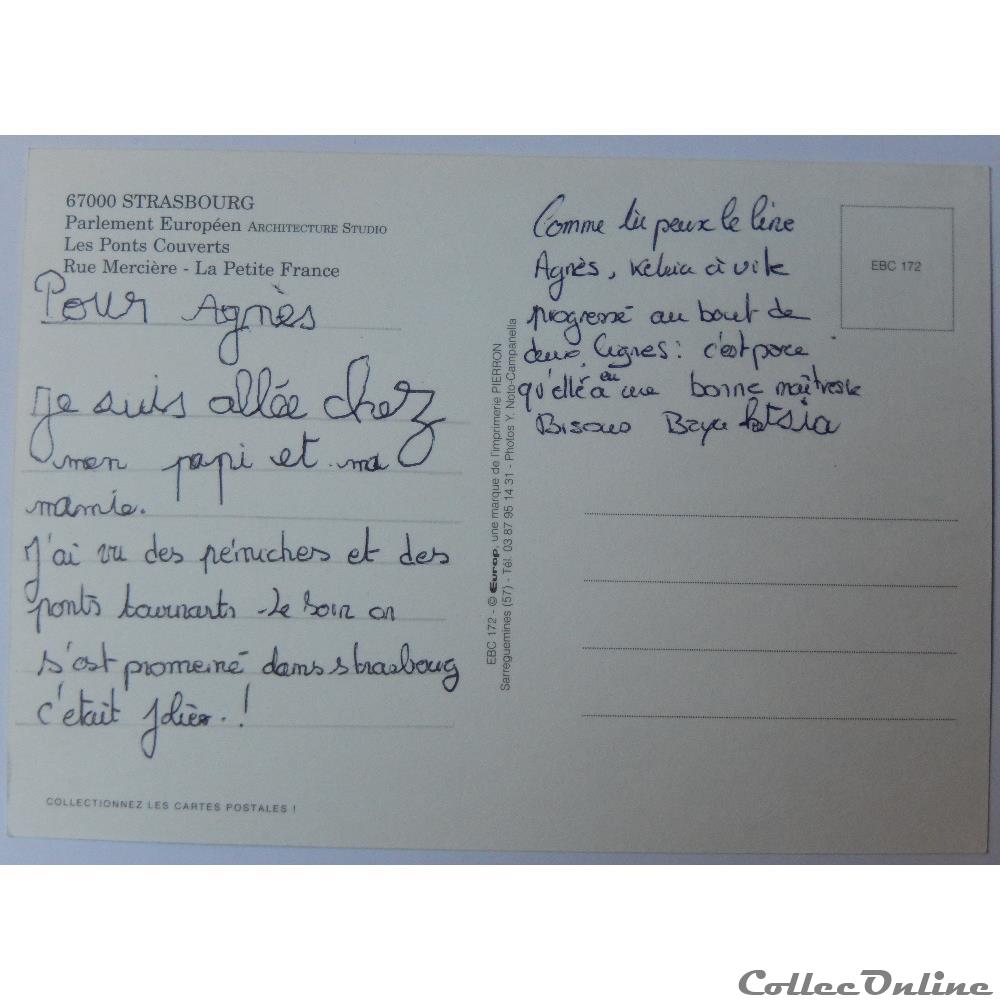 67000 STRASBOURG
Parlement Européen ARCHITECTURE STUDIO
Les Ponts Couverts
Rue Mercière - La Petite France
Pour Agnès
je suis allée chez
mon papi et ma
mamie.
J'ai vu des péruches et des
ponts tournants - Le soir on
s'est promeiné dans strasboug
c'était jolies.!
COLLECTIONNEZ LES CARTES POSTALES !
EBC 172 - © Europ, une marque de l'imprimerie PIERRON
Sarreguemines (57) - Tél. 03 87 95 14 31 - Photos Y. Noto-Campanella
Comme tu peux le lire
Agnès, à vite
progressé au bout de
deux lignes : c'est parce
qu'elle a eu une bonne maîtresse
Bisous
EBC 172
CollecOnline